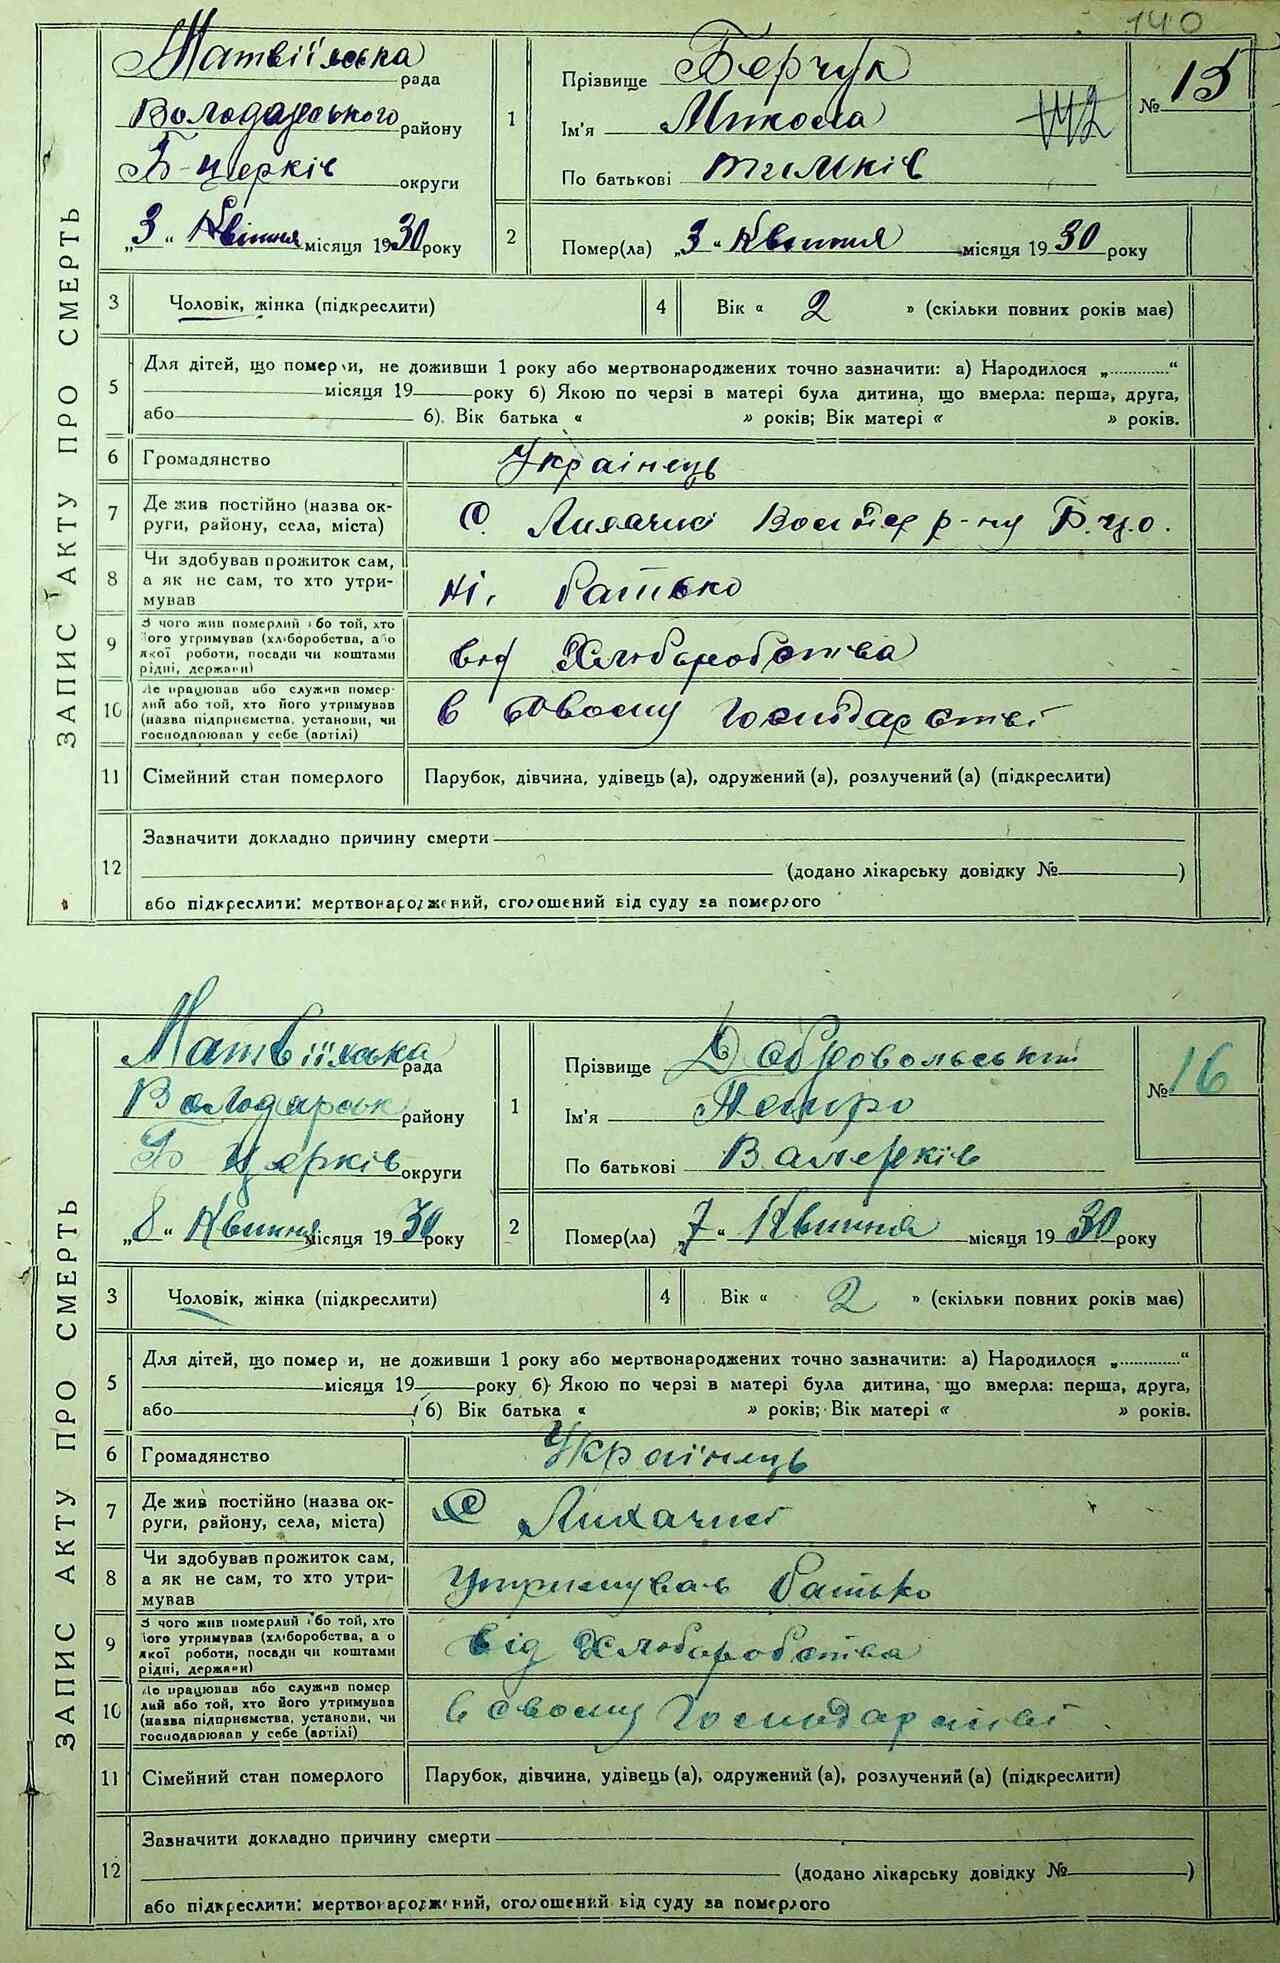 140
ЗАПИС АКТУ ПРО СМЕРТЬ
Матвіїнська рада
Володарського району
Б-церків округи
„3“ Квітня місяця 1930 року
1
Прізвище Берчук
Ім'я Микола
По батькові Тимків
№ 15
2 Помер(ла) „3“ Квітня місяця 1930 року
3 Чоловік, жінка (підкреслити)
4 Вік « 2 » (скільки повних років має)
5
Для дітей, що померли, не доживши 1 року або мертвонароджених точно зазначити: а) Народилося „.............“
місяця 19 року б) Якою по черзі в матері була дитина, що вмерла: перша, друга,
або б). Вік батька « » років; Вік матері « » років.
6 Громадянство Українець
7 Де жив постійно (назва округи, району, села, міста) С. Лихачисі р-ну Б.ц.о.
8 Чи здобував прожиток сам,
а як не сам, то хто утри-
мував
ні, батько
9 З чого жив померлий або той, хто
його утримував (хліборобства, або
якої роботи, посади чи коштами
рідні, держави)
від Хліборобства
10 Де працював або служив помер-
лий або той, хто його утримував
(назва підприємства, установи, чи
господарював у себе (артілі)
в Своєму Господарстві
11 Сімейний стан померлого Парубок, дівчина, удівець (а), одружений (а), розлучений (а) (підкреслити)
12
Зазначити докладно причину смерти
(додано лікарську довідку № )
або підкреслити: мертвонароджений, оголошений від суду за померлого
ЗАПИС АКТУ ПРО СМЕРТЬ
Матвіїнська рада
Володарськ району
Б Церків округи
„8“ Квітня місяця 1930 року
1
Прізвище Добровольський
Ім'я Петро
По батькові Валерків
№ 16
2 Помер(ла) „7“ Квітня місяця 1930 року
3 Чоловік, жінка (підкреслити)
4 Вік « 2 » (скільки повних років має)
5
Для дітей, що померли, не доживши 1 року або мертвонароджених точно зазначити: а) Народилося „.............“
місяця 19 року б) Якою по черзі в матері була дитина, що вмерла: перша, друга,
або б) Вік батька « » років; Вік матері « » років.
6 Громадянство Українець
7 Де жив постійно (назва округи, району, села, міста) С Лихачисі
8 Чи здобував прожиток сам,
а як не сам, то хто утри-
мував
утримував батько
9 З чого жив померлий або той, хто
його утримував (хліборобства, або
якої роботи, посади чи коштами
рідні, держави)
від Хліборобства
10 Де працював або служив помер
лий або той, хто його утримував
(назва підприємства, установи, чи
господарював у себе (артілі)
в своєму Господарстві
11 Сімейний стан померлого Парубок, дівчина, удівець (а), одружений (а), розлучений (а) (підкреслити)
12
Зазначити докладно причину смерти
(додано лікарську довідку № )
або підкреслити: мертвонароджений, оголошений від суду за померлого